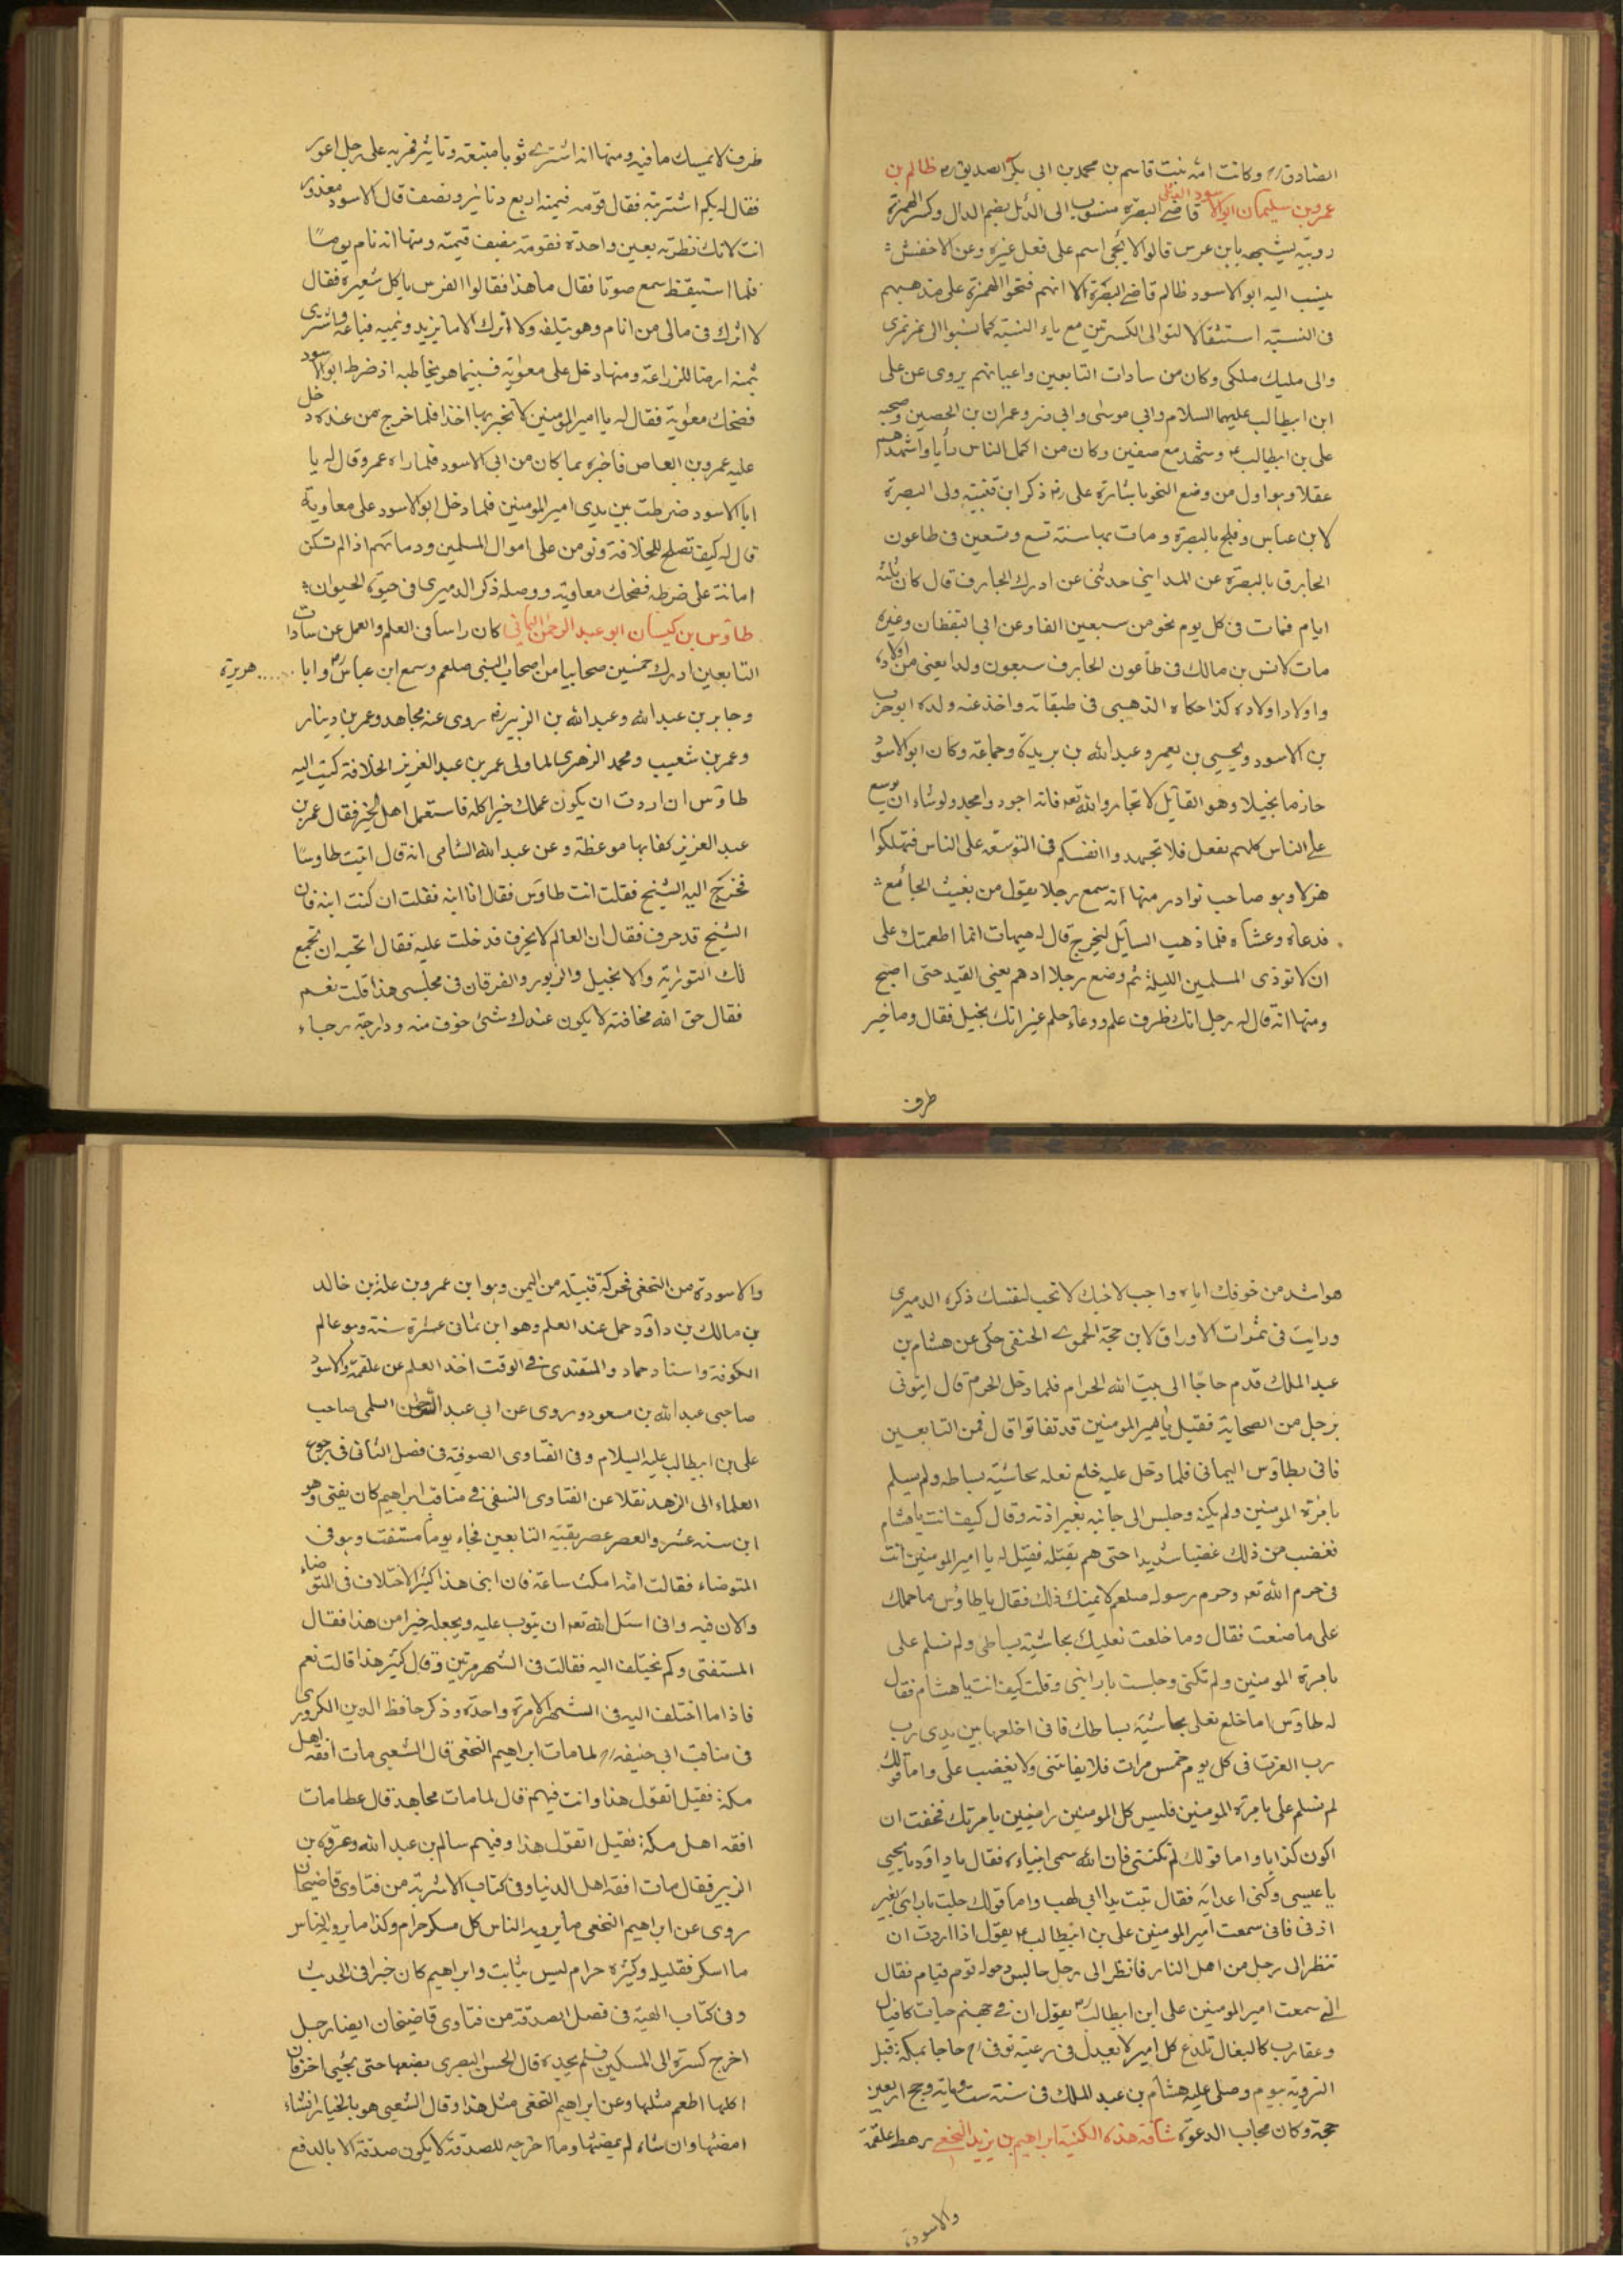 الصادق رح وكانت امه بنت قاسم بن محمد بن ابى بكر الصديق رض ظالم بن
عمرو بن سليمان ابو الاسود الدئلى قاضى البصرة منسوب الى الدئل بضم الدال وكسر الهمزة
دويبة شبيهة بابن عرس قالوا لا يجئ اسم على فعل غيره وعن الاخفش
ينسب اليه ابو الاسود ظالم قاضى البصرة الا انهم فتحوا الهمزة على مذهبهم
فى النسبة استثقالا لتوالى الكسرتين مع ياء النسبة كما نسبوا الى نمر نمرى
والى مليك ملكى وكان من سادات التابعين واعيانهم يروى عن على
ابن ابيطالب عليهما السلام وابى موسى وابى ذر وعمران بن الحصين وصحبه
على بن ابيطالب وشهد مع صفين وكان من اكمل الناس رأيا واشدهم
عقلا وهو اول من وضع النحو باشارة على رض ذكر ابن قتيبة ولى البصرة
لابن عباس وفلج بالبصرة ومات بها سنة تسع وتسعين فى طاعون
الجارف بالبصرة عن المداينى حدثنى عن ادرك الجارف قال كان ثلثة
ايام فمات فى كل يوم نحو من سبعين الفا وعن ابى اليقظان وغيره
مات لانس بن مالك فى طاعون الجارف سبعون ولدا يعنى من اولاده
واولاد اولاده كذا حكاه الذهبى فى طبقاته واخذ عنه ولده ابو حرب
بن الاسود ويحيى بن يعمر وعبد الله بن بريدة وجماعة وكان ابو الاسود
حازما بخيلا وهو القآئل لا تجاروا الله تعه فانه اجود وامجد ولو شاء ان يوسع
على الناس كلهم لفعل فلا تجهدوا انفسكم فى التوسعة على الناس فتهلكوا
هزلا وهو صاحب نوادر منها انه سمع رجلا يقول من يغيث الجائع
فدعاه وعشاه فلما ذهب السآئل ليخرج قال له هيهات انما اطعمتك على
ان لا توذى المسلمين الليلة ثم وضع رجلا ادهم يعنى القيد حتى اصبح
ومنها انه قال له رجل انك ظرف علم ووعاء حلم غير انك بخيل فقال وما خير
ظرف
ظرف لا يمسك ما فيه ومنها انه اشترى ثوبا فمر به على رجل اعور
فقال له بكم اشتريته فقال قومه فقال قيمته اربع دنانير ونصف قال الاسود معذور
انت لانك نظرته بعين واحدة فقومته بنصف قيمته ومنها انه نام يوما
فلما استيقظ سمع صوتا فقال ما هذا فقالوا الفرس يأكل شعيره فقال
لا اترك فى مالى من انام وهو يتلفه ولا اترك الا ما يزيد وينميه فباعه واشترى
بثمنه ارضا للزراعة ومنها دخل على معوية فبينما هو يخاطبه اذ ضرط ابو الاسود
فضحك معوية فقال له يا امير المومنين لا تخبر بها احدا فلما خرج من عنده دخل
عليه عمرو بن العاص فاخبره بما كان من ابى الاسود فلما راه عمرو قال له يا
ابا الاسود ضرطت بين يدى امير المومنين فلما دخل ابو الاسود على معاوية
قال له كيف تصلح للخلافة وتومن على اموال المسلمين ودمائهم اذا لم تكن
امانة على ضرطة فضحك معاوية ووصله ذكر الدميرى فى حيوة الحيوان
طاوس بن كيسان ابو عبد الرحمن اليمانى كان راسا فى العلم والعمل عن سادات
التابعين ادرك خمسين صحابيا من اصحاب النبى صلعم وسمع ابن عباس رض وابا ..... هريرة
وجابر بن عبد الله وعبد الله بن الزبير رض روى عنه مجاهد وعمر بن دينار
وعمر بن شعيب ومحمد الزهرى لما ولى عمر بن عبد العزيز الخلافة كتب اليه
طاوس ان اردت ان يكون عملك خيرا كله فاستعمل اهل الخير فقال عمر بن
عبد العزيز كفا بها موعظة وعن عبد الله الشامى انه قال اتيت طاوسا
فخرج اليه الشيخ فقلت انت طاوس فقال انا ابنه فقلت ان كنت ابنه فان
الشيخ قد خرف فقال ان العالم لا يخرف فدخلت عليه فقال اتحب ان تجمع
لك التورية والانجيل والزبور والفرقان فى مجلسى هذا قلت نعم
فقال خف الله مخافة لا يكون عندك شئ خوف منه وارجه رجاء
هو اشد من خوفك اياه واحب لاخيك لا تحب لنفسك ذكره الدميرى
ورايت فى ثمرات الاوراق لابن حجة الحموى الحنفى حكى عن هشام بن
عبد الملك قدم حاجا الى بيت الله الحرام فلما دخل الحرم قال ايتونى
برجل من الصحابة فقيل يا امير المومنين قد تفانوا قال فمن التابعين
فاتى بطاوس اليمانى فلما دخل عليه خلع نعله بحاشية بساطه ولم يسلم
بامرة المومنين ولم يكنه وجلس الى جانبه بغير اذنه وقال كيف انت يا هشام
فغضب من ذلك غضبا شديدا حتى هم بقتله فقيل له يا امير المومنين انت
فى حرم الله تعه وحرم رسوله صلعم لا يمكنك ذلك فقال يا طاوس ما حملك
على ما صنعت فقال وما خلعت نعليك بحاشية بساطى ولم تسلم على
بامرة المومنين ولم تكنى وجلست بازائى وقلت كيف انت يا هشام فقال
له طاوس اما خلع نعلى بحاشية بساطك فانى اخلعها بين يدى رب
رب العزت فى كل يوم خمس مرات فلا يعاتبنى ولا يغضب على واما قولك
لم تسلم على بامرة المومنين فليس كل المومنين راضيين بامرتك فخفت ان
اكون كذابا واما قولك لم تكننى فان الله سمى انبياءه فقال يا داود يا يحيى
يا عيسى وكنى اعدايه فقال تبت يدا ابى لهب واما قولك جلست بازائى بغير
اذنى فانى سمعت امير المومنين على بن ابيطالب يقول اذا اردت ان
تنظر الى رجل من اهل النار فانظر الى رجل جالس وحوله قوم قيام فقال
انى سمعت امير المومنين على ابن ابيطالب رض يقول ان فى جهنم حيات
وعقارب كالبغال تلدغ كل امير لا يعدل فى رعيته توفى رح حاجا بمكة قبل
التروية بيوم وصلى عليه هشام بن عبد الملك فى سنة ست وماية وحج اربعين
حجة وكان مجاب الدعوة ابراهيم بن يزيد النخعى رهط علقمة
والاسود
والاسود من النخعى محركة قبيلة من اليمن وهو ابن عمرو بن علة بن خالد
بن مالك بن داود حمل عنه العلم وهو ابن ثمانى عشرة سنة وهو عالم
الكوفة واستاد حماد والمقتدى فى الوقت اخذ العلم عن علقمة والاسود
صاحبى عبد الله بن مسعود وروى عن ابى عبد الرحمن السلمى صاحب
على بن ابيطالب عليه السلام وفى الفتاوى الصوفية فى فصل الثانى فى رجوع
العلماء الى الزهد نقلا عن الفتاوى النسفى فى مناقب ابراهيم كان يفتى وهو
ابن سنه عشر والعصر عصر بقية التابعين فجاء يوما مستفت وهو فى
المتوضاء فقالت امه امكث ساعة فان ابنى هذا كثير الاختلاف فى المتوضاء
والان فيه وانى اسئل الله تعه ان يتوب عليه ويجعله خيرا من هذا فقال
المستفتى وكم يختلف اليه فقالت فى الشهر مرتين وقال كثير هذا قالت نعم
فاذا ما اختلف اليه فى الشهر الا مرة واحدة وذكر حافظ الدين الكردرى
فى مناقب ابى حنيفه رح لما مات ابراهيم النخعى قال الشعبى مات افقه اهل
مكة فقيل اتقول هذا وانت فيهم قال لما مات مجاهد قال عطا مات
افقه اهل مكة فقيل اتقول هذا وفيهم سالم بن عبد الله وعروة بن
الزبير فقال مات افقه اهل الدنيا وفى كتاب الاشربة من فتاوى قاضيخان
روى عن ابراهيم النخعى ما يرويه الناس كل مسكر حرام وكذا ما يرويه الناس
ما اسكر فقليله وكثيره حرام ليس بثابت وابراهيم كان خبرا فى الحديث
وفى كتاب الهبة فى فصل الصدقة من فتاوى قاضيخان ايضا رجل
اخرج كسرة الى المسكين فلم يجده قال الحسن البصرى يضعها حتى يجئ اخر فان
اكلها اطعم مثلها وعن ابراهيم النخعى مثل هذا وقال الشعبى هو بالخيار ان شاء
امضيها وان شاء لم يمضيها وما اخرجه للصدقة لا يكون صدقة الا بالدفع